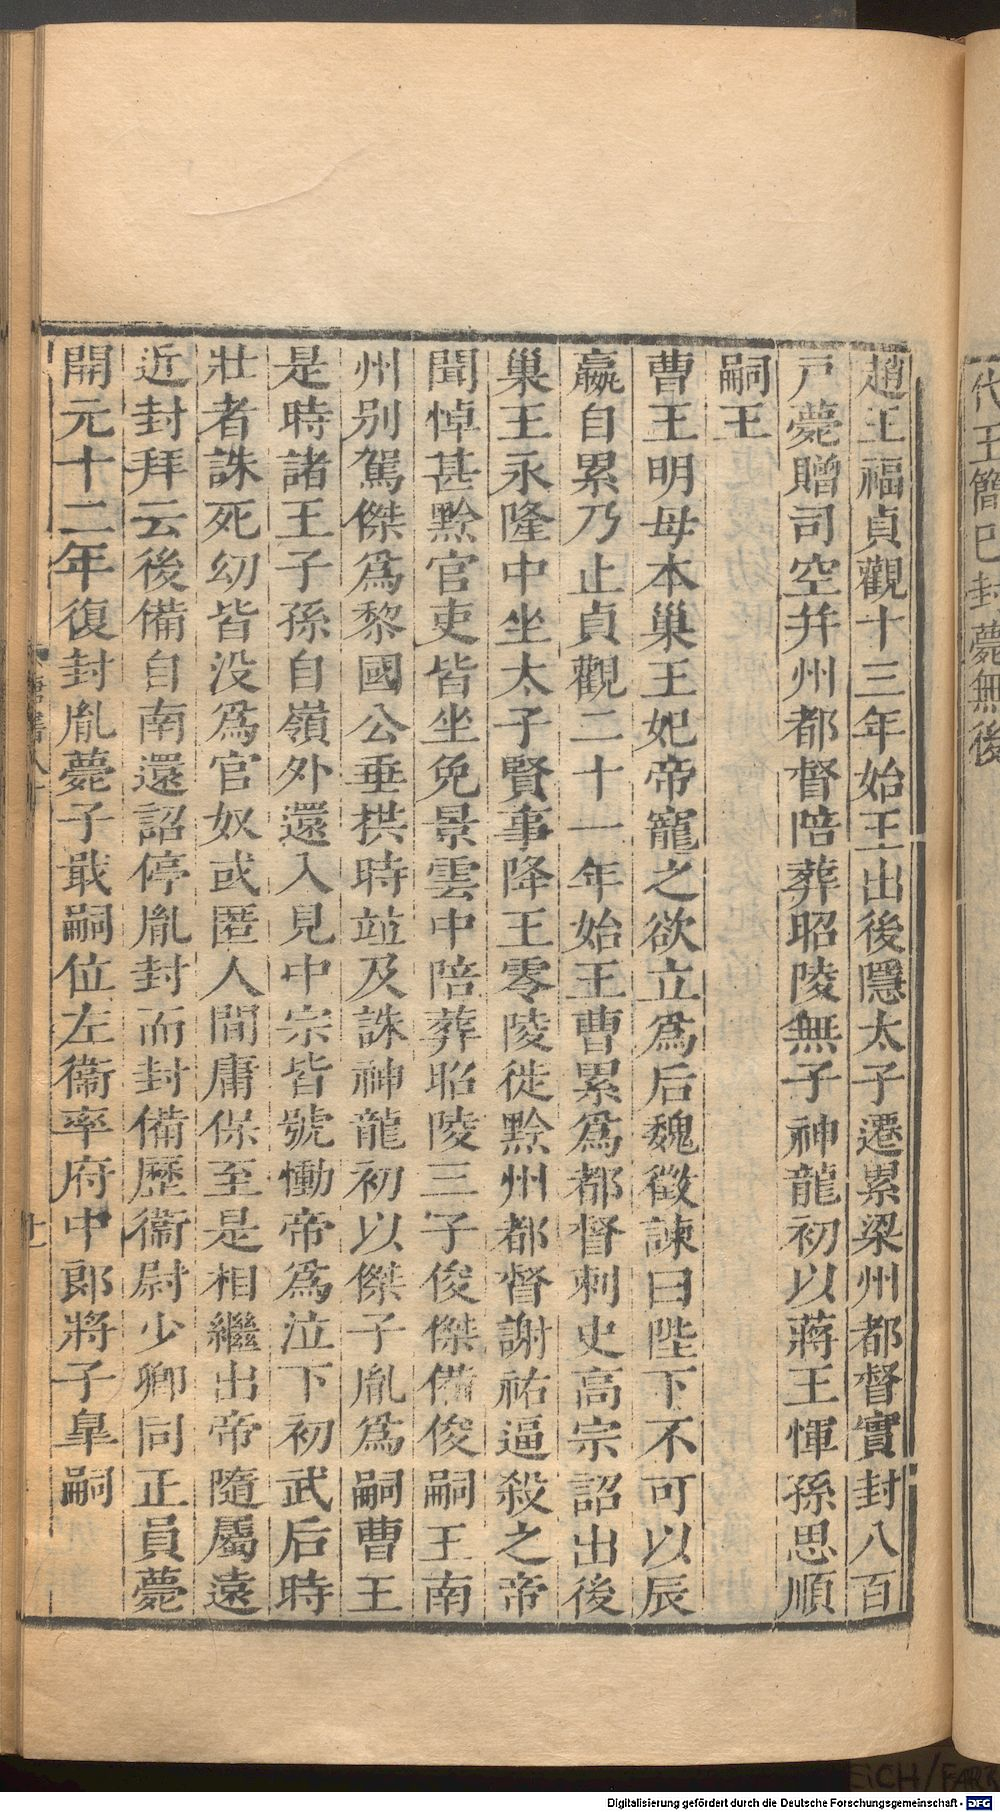 代王簡已封薨無後
趙王福貞觀十三年始王出後隱太子遷累梁州都督實封八百
戸薨贈司空幷州都督陪葬昭陵無子神龍初以蔣王惲孫思順
嗣王
曹王明母本巢王妃帝寵之欲立爲后魏徵諫曰陛下不可以辰
嬴自累乃止貞觀二十一年始王曹累爲都督刺史高宗詔出後
巢王永隆中坐太子賢事降王零陵徙黔州都督謝祐逼殺之帝
聞悼甚黔官吏皆坐免景雲中陪葬昭陵三子俊傑備俊嗣王南
州别駕傑爲黎國公垂拱時竝及誅神龍初以傑子胤爲嗣曹王
是時諸王子孫自嶺外還入見中宗皆號慟帝爲泣下初武后時
壯者誅死幼皆没爲官奴或匿人間庸保至是相繼出帝隨屬遠
近封拜云後備自南還詔停胤封而封備歷衞尉少卿同正員薨
開元十二年復封胤薨子戢嗣位左衞率府中郎將子皐嗣
唐書八十
廿一
Digitalisierung gefördert durch die Deutsche Forschungsgemeinschaft - DFG